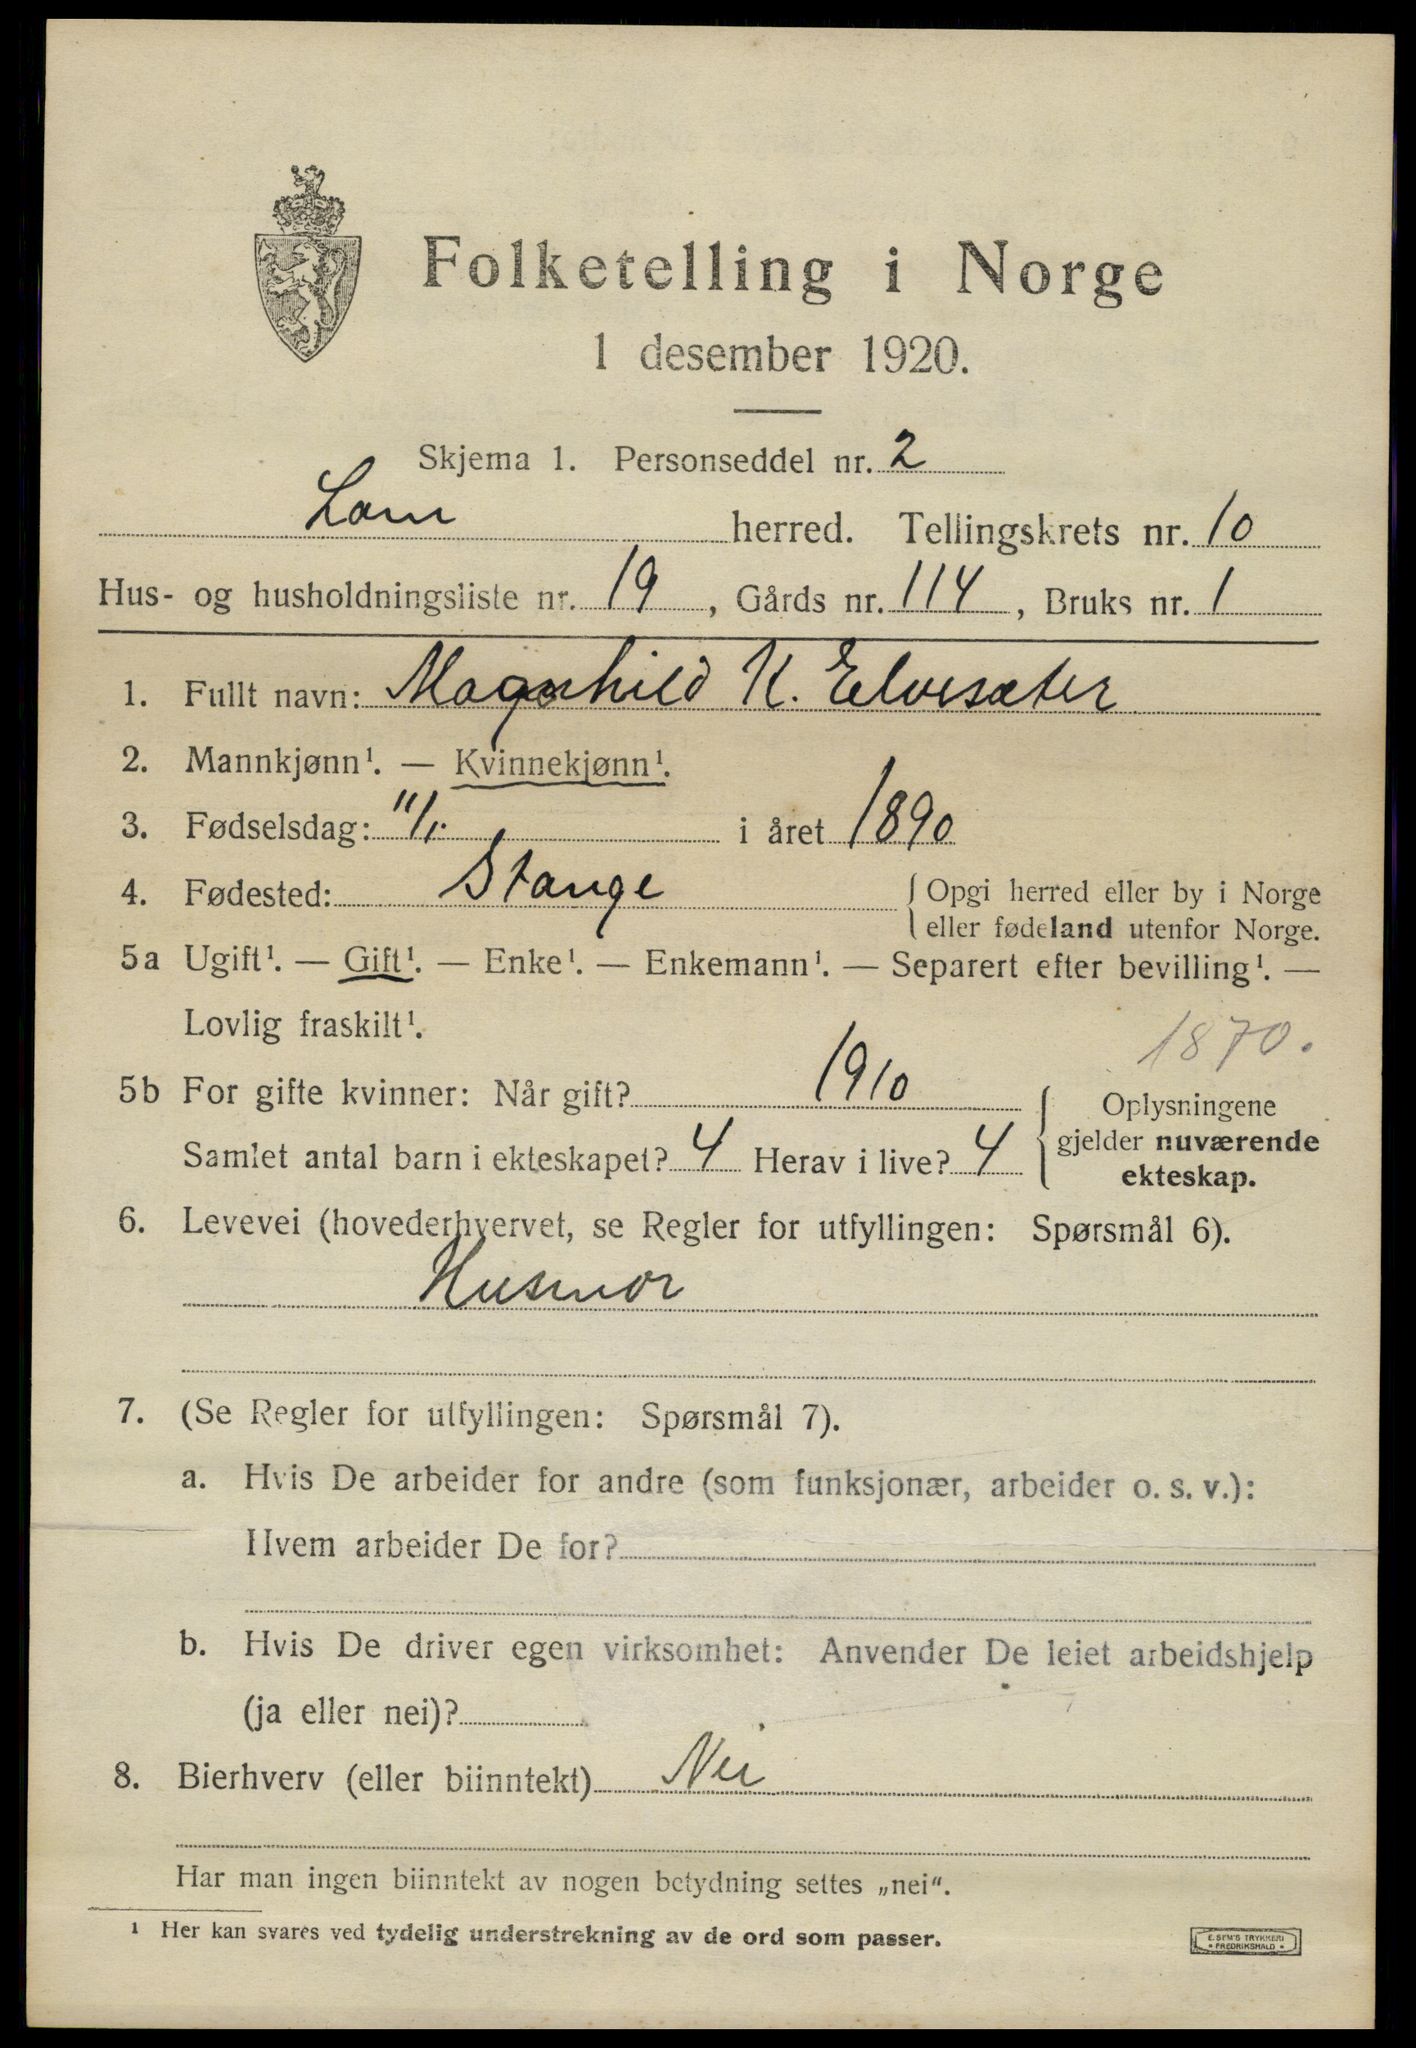 Folketelling i Norge
1 desember 1920.
Skjema 1. Personseddel nr. 2
Lom herred. Tellingskrets nr. 10
Hus- og husholdningsliste nr. 19, Gårds nr. 114, Bruks nr. 1
1. Fullt navn: Magnhild K. Elvesæter
2. Mannkjønn¹. — Kvinnekjønn¹.
3. Fødselsdag: 11/1. i året 1890
4. Fødested: Stange { Opgi herred eller by i Norge
eller fødeland utenfor Norge.
5a Ugift¹. — Gift¹. — Enke¹. — Enkemann¹. — Separert efter bevilling¹. —
Lovlig fraskilt¹.
1870.
5b For gifte kvinner: Når gift? 1910 { Oplysningene
gjelder nuværende
ekteskap.
Samlet antal barn i ekteskapet? 4 Herav i live? 4
6. Levevei (hovederhvervet, se Regler for utfyllingen: Spørsmål 6).
Husmor
7. (Se Regler for utfyllingen: Spørsmål 7).
a. Hvis De arbeider for andre (som funksjonær, arbeider o. s. v.):
Hvem arbeider De for?
b. Hvis De driver egen virksomhet: Anvender De leiet arbeidshjelp
(ja eller nei)?
8. Bierhverv (eller biinntekt) Nei
Har man ingen biinntekt av nogen betydning settes „nei".
¹ Her kan svares ved tydelig understrekning av de ord som passer.
E. SEM'S TRYKKERI
* FREDRIKSHALD *